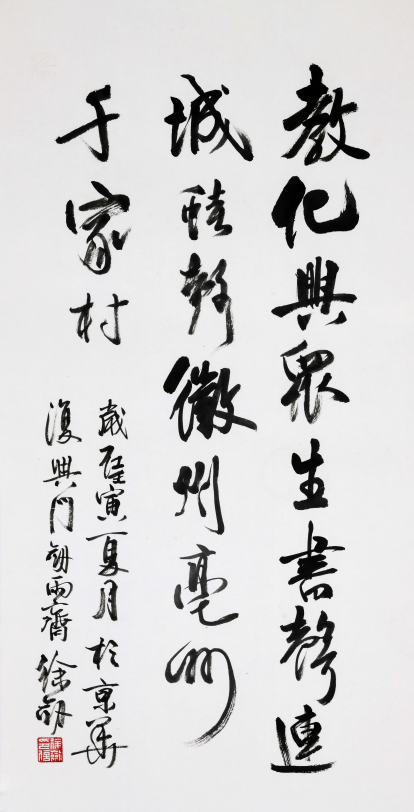 教化興眾生書聲連
城蛙聲徽州亳州
千家村
歲在壬寅夏月於京華
復興門劍雨齋徐劍